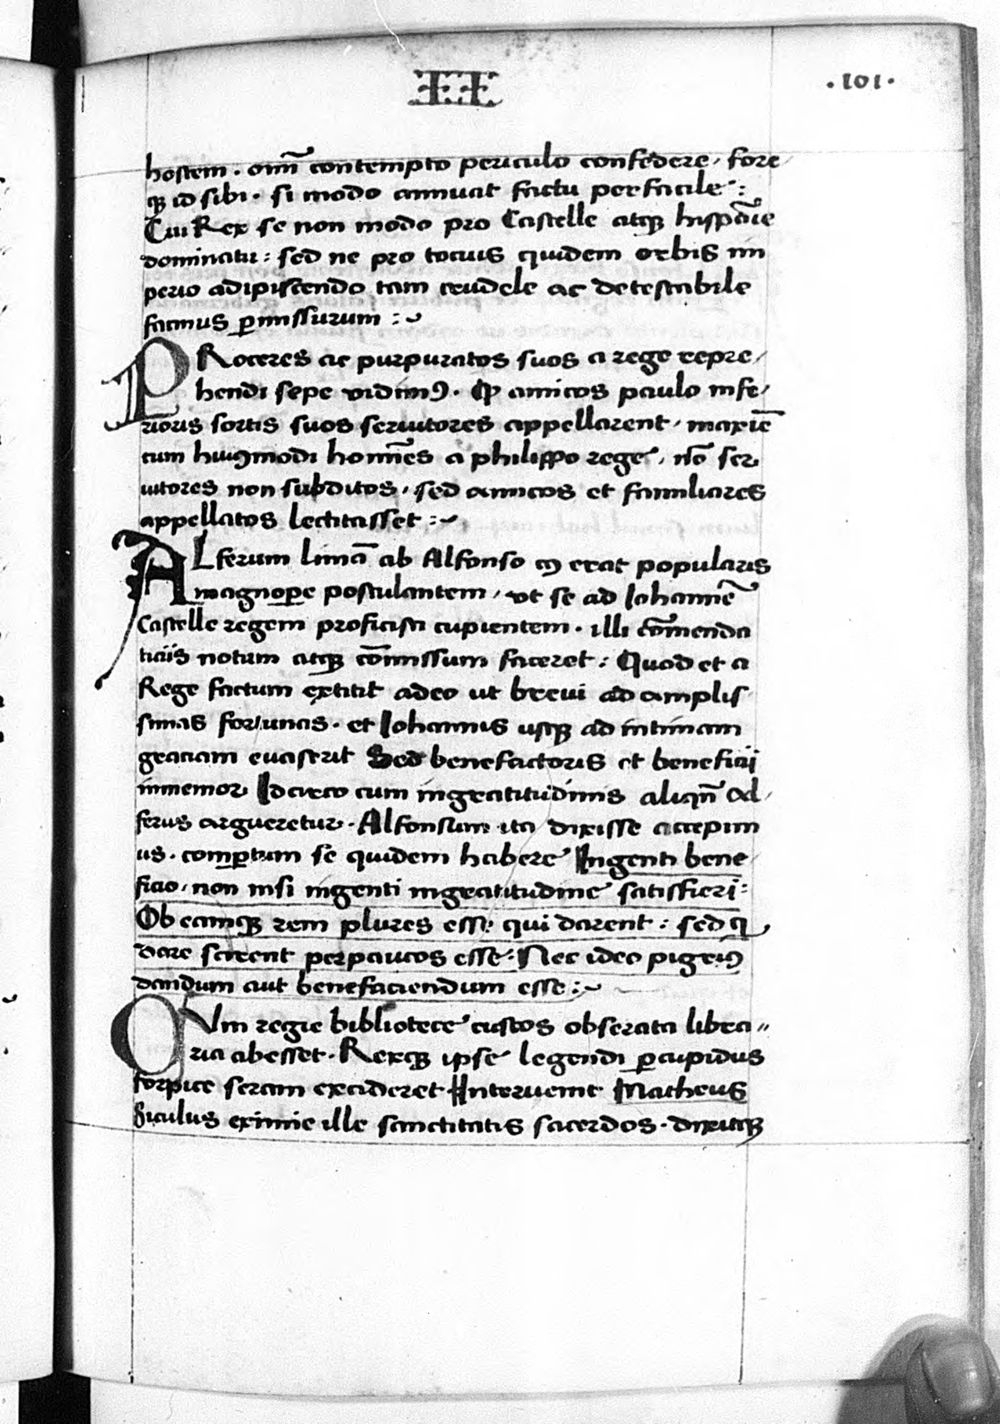 III
.101.
hostem. om̄i contempto periculo confodere, fore
qꝫ id sibi. si modo annuat factu perfacile:
Cui Rex se non modo pro Castelle atqꝫ hispāie
dominatu: sed ne pro tocius quidem orbis im
perio adipiscendo tam crudele ac detestabile
facinus ꝑmissurum :~
PRoceres ac purpuratos suos a rege repre,
hendi sepe vidimꝰ. Ꝙ amicos paulo infe,
rioris sortis suos seruitores appellarent, maxīe
cum huiꝰmodi homīes a philippo rege, nō ser
uitores non subditos, sed amicos et familiares
appellatos lectitasset :~
ALferum limā ab Alfonso cꝰ erat popularis
magnoꝑe postulantem, vt se ad Iohannē
Castelle regem proficisci cupientem. illi cōmenda
ticiis notum atqꝫ cōmissum faceret: Quod et a
Rege factum extitit adeo ut breui ad amplis
simas fortunas. et Iohannis usqꝫ ad intimam
graciam euaserit Sed benefactoris et beneficii
inmemor, Idcirco cum ingratitudinis aliqn̄ Al,
ferus argueretur. Alfonsum ita dixisse accepim
us. comꝑtum se quidem habere Ingenti bene
ficio, non nisi ingenti ingratitudine satisfieri:
Ob eamqꝫ rem plures esse qui darent: sed q̄
dare scirent perpaucos esse: Nec ideo pigriꝰ
dandum aut benefaciendum esse :~
CUm regie bibliotece custos obserata libra"
ria abesset. Rexqꝫ ipse legendi ꝑcupidus
forpice seram excideret Interuenit Matheus
Siculus eximie ille sanctitatis sacerdos. dixitqꝫ